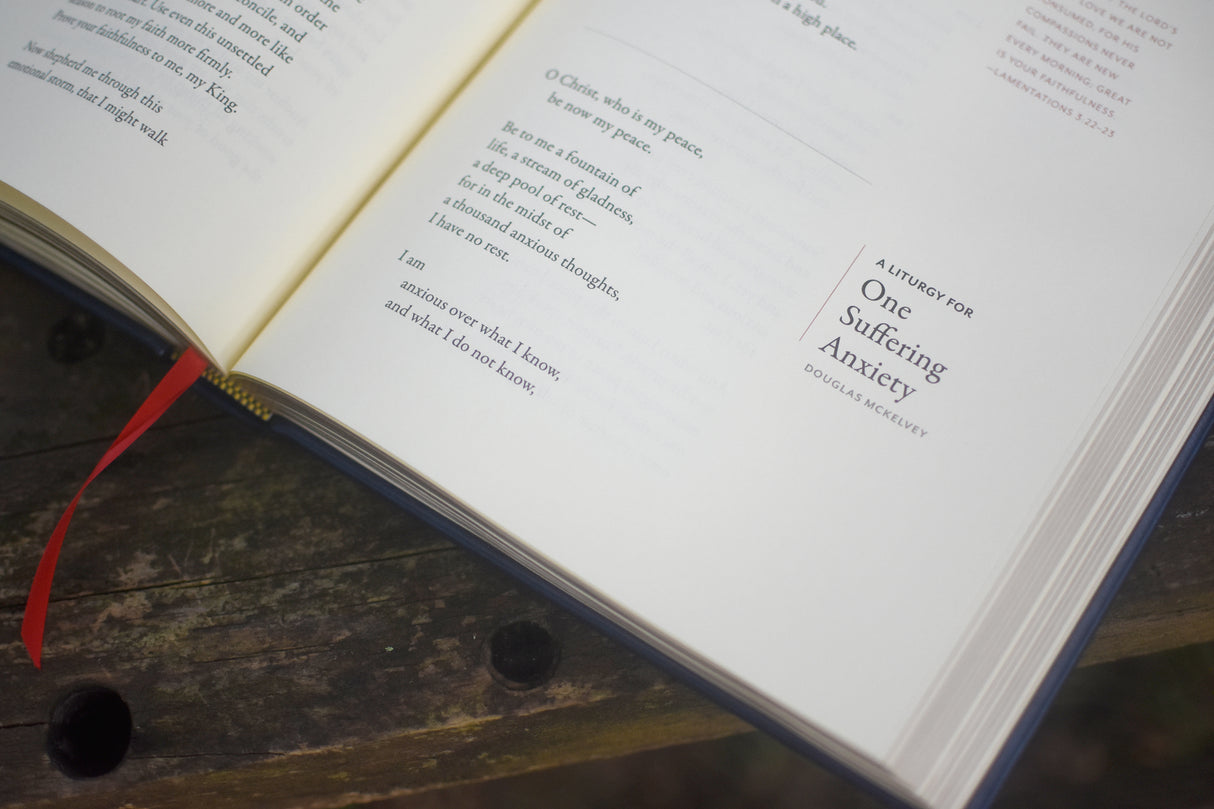 the
in order
concile, and
more and more like
art. Use even this unsettled
season to root my faith more firmly.
Prove your faithfulness to me, my King.
Now shepherd me through this
emotional storm, that I might walk
a high place.
O Christ, who is my peace,
be now my peace.
Be to me a fountain of
life, a stream of gladness,
a deep pool of rest—
for in the midst of
a thousand anxious thoughts,
I have no rest.
I am
anxious over what I know,
and what I do not know,
THE LORD'S
LOVE WE ARE NOT
CONSUMED, FOR HIS
COMPASSIONS NEVER
FAIL. THEY ARE NEW
EVERY MORNING; GREAT
IS YOUR FAITHFULNESS.
—LAMENTATIONS 3:22–23
A LITURGY FOR
One
Suffering
Anxiety
DOUGLAS MCKELVEY